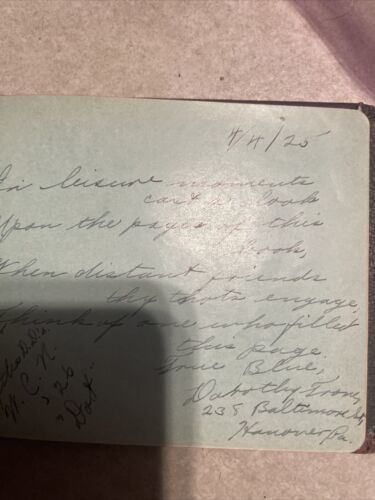 4/4/25
In leisure moments
cast a look
Upon the pages of this
book,
When distant friends
thy thots engage,
Think of one who filled
this page.
True Blue,
Dorothy
238 Baltimore St,
Hanover Pa.
W. C. N.
'26
"Dot"